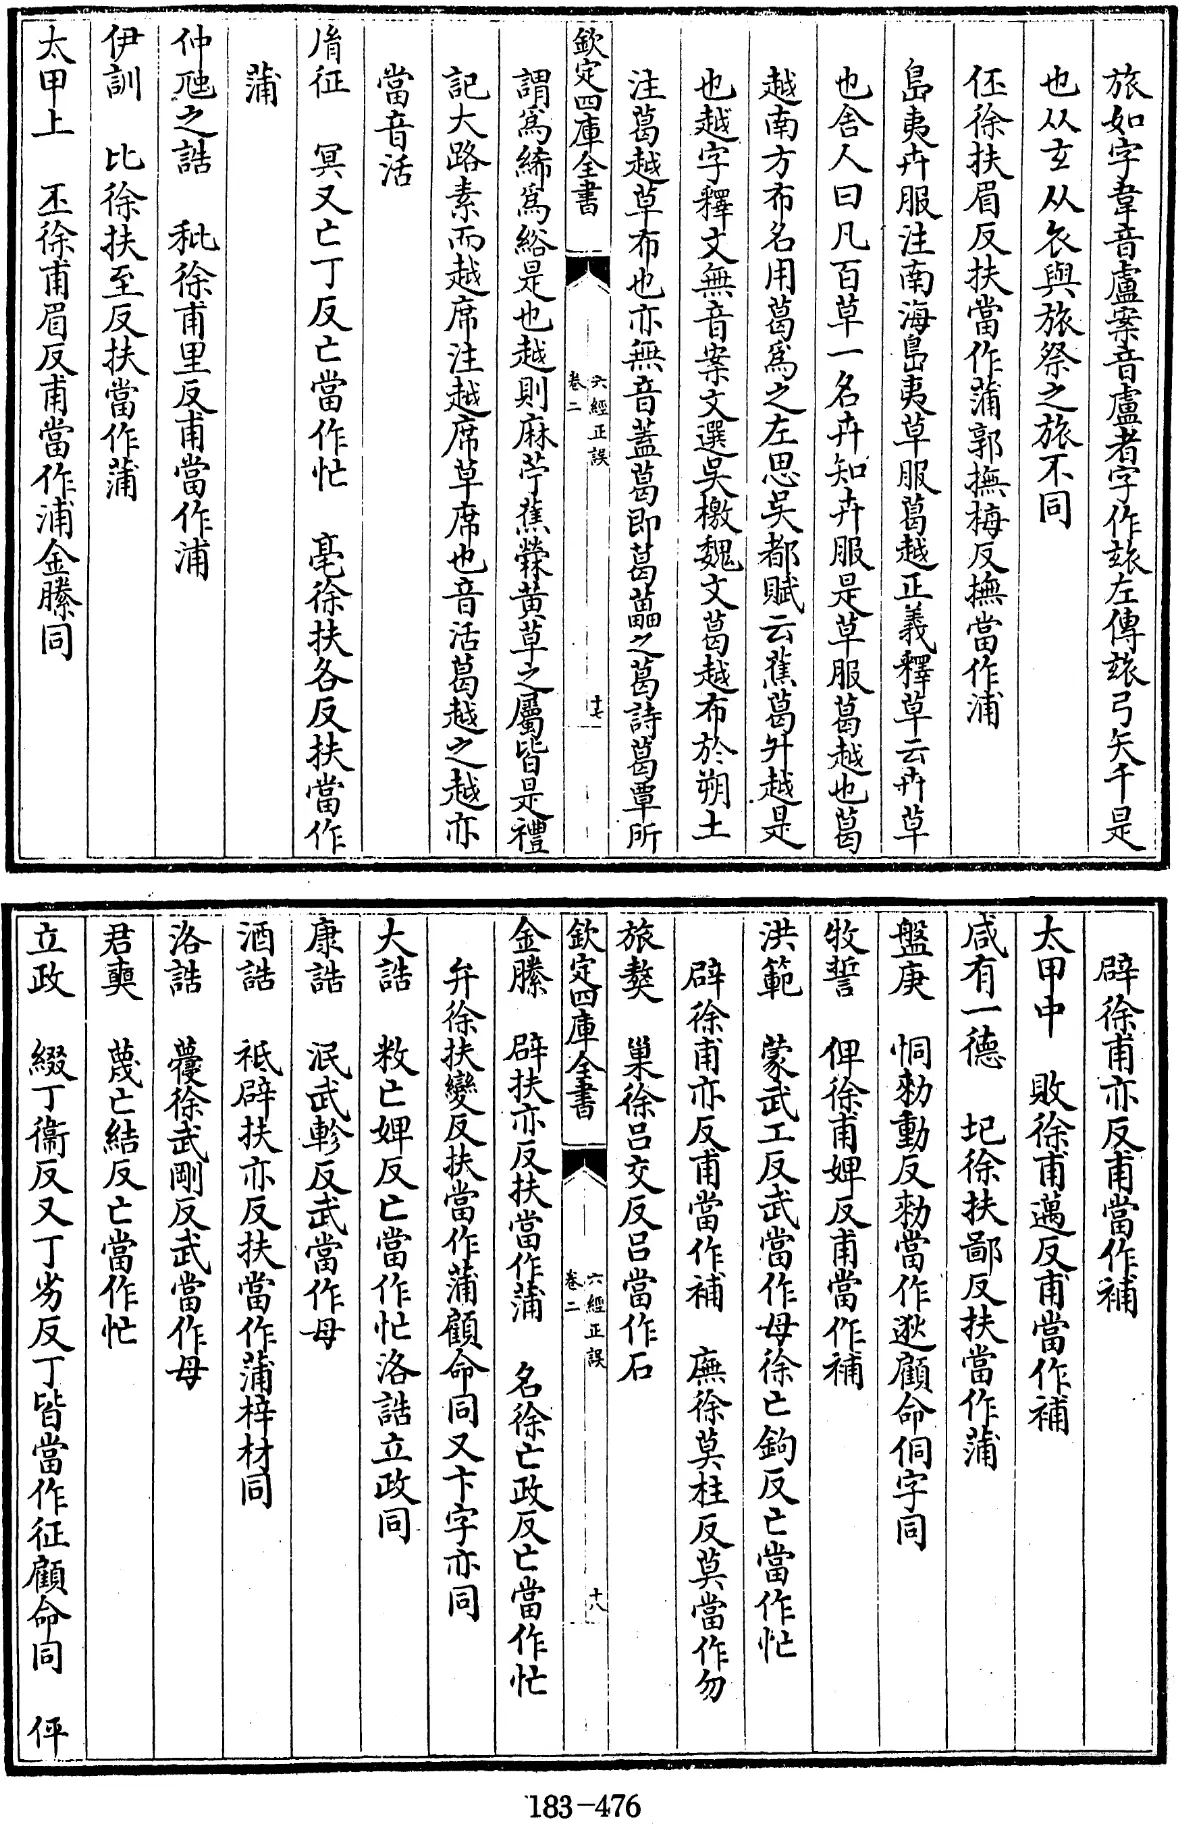 旅如字韋音盧案音盧者字作玈左傳玈弓矢千是
也从玄从衣與旅祭之旅不同
伾徐扶眉反扶當作蒲郭撫梅反撫當作浦
島夷卉服注南海島夷草服葛越正義釋草云卉草
也舍人曰凡百草一名卉知卉服是草服葛越也葛
越南方布名用葛為之左思吳都賦云蕉葛升越是
也越字釋文無音案文選吳檄魏文葛越布於朔土
注葛越草布也亦無音蓋葛即葛藟之葛詩葛覃所
欽定四庫全書
卷二 六經正誤
十七
謂為絺為綌是也越則麻苧蕉䔛黄草之屬皆是禮
記大路素而越席注越席草席也音活葛越之越亦
當音活
胤征 冥又亡丁反亡當作忙 亳徐扶各反扶當作
蒲
仲虺之誥 秕徐甫里反甫當作浦
伊訓 比徐扶至反扶當作蒲
太甲上 丕徐甫眉反甫當作浦金縢同
辟徐甫亦反甫當作補
太甲中 敗徐甫邁反甫當作補
咸有一德 圮徐扶鄙反扶當作蒲
盤庚 恫勑動反勑當作逖顧命侗字同
牧誓 俾徐甫婢反甫當作補
洪範 蒙武工反武當作母徐亡鉤反亡當作忙
辟徐甫亦反甫當作補 廡徐莫柱反莫當作勿
旅獒 巢徐呂交反呂當作石
欽定四庫全書
卷二 六經正誤
十八
金縢 辟扶亦反扶當作蒲 名徐亡政反亡當作忙
弁徐扶變反扶當作蒲顧命同又卞字亦同
大誥 敉亡婢反亡當作忙洛誥立政同
康誥 泯武軫反武當作母
酒誥 祗辟扶亦反扶當作蒲梓材同
洛誥 蘉徐武剛反武當作母
君奭 蔑亡結反亡當作忙
立政 綴丁衞反又丁劣反丁皆當作征顧命同 伻
183-476